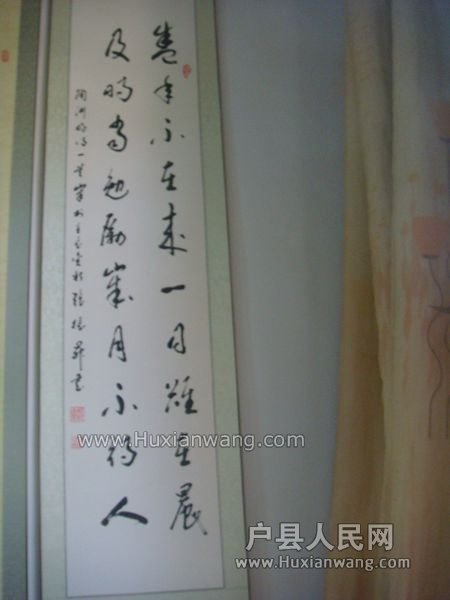 盛年不重來一日難再晨
及時當勉勵歲月不待人
陶淵明詩一首
www.Huxianwang.com
户县人民网
www.Huxianwang.com